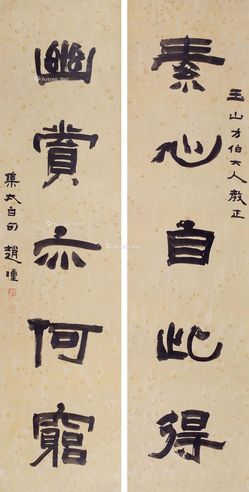 玉山方伯大人教正
素心自此得
幽賞亦何窮
集太白句 趙曈